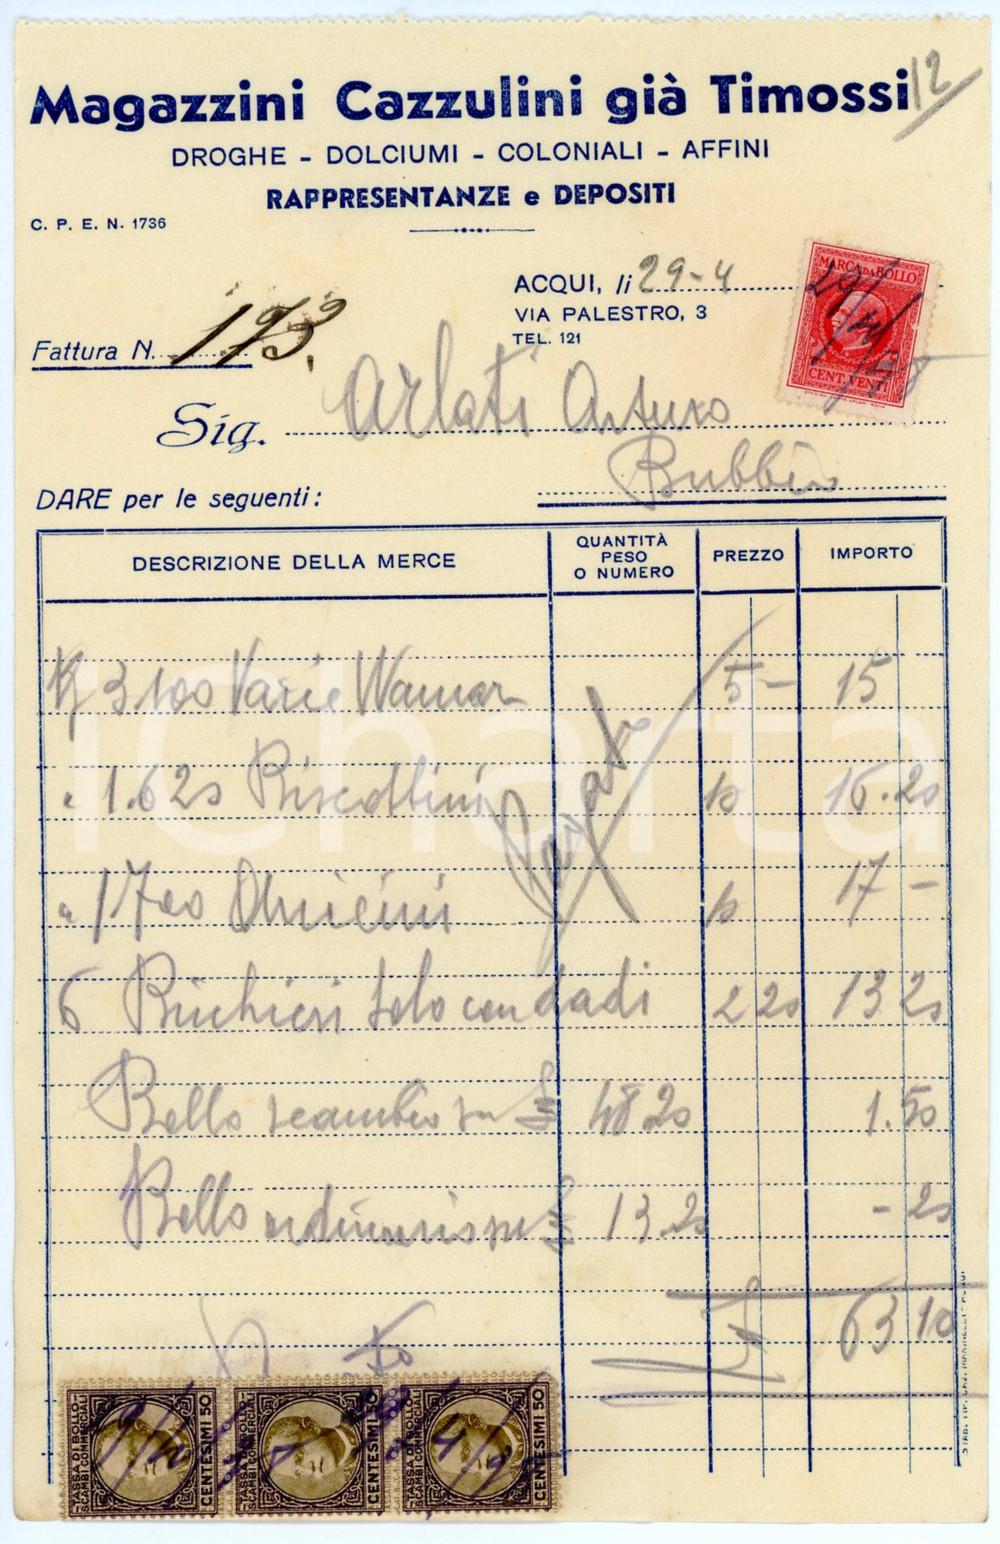 Magazzini Cazzulini già Timossi 12
DROGHE - DOLCIUMI - COLONIALI - AFFINI
RAPPRESENTANZE e DEPOSITI
C. P. E. N. 1736
ACQUI, li 29-4
VIA PALESTRO, 3
TEL. 121
MARCA DA BOLLO
CENT. VENTI
Fattura N. 173.
Sig. Arlati Arturo
Bubbio
DARE per le seguenti:
DESCRIZIONE DELLA MERCE
QUANTITÀ PESO O NUMERO
PREZZO
IMPORTO
K 3 100 Varie Wamar 5 - 15
" 1.620 Biscottini 10 16.20
" 1700 Amicini 10 17 -
6 Bicchieri solo con dadi 2 20 13 20
Bollo scambio su £ 48 20 1.50
Bollo ordinario su £ 13.20 - 20
£ 63 10
Pagato
TASSA DI BOLLO SCAMBI COMMERCIALI CENTESIMI 50
TASSA DI BOLLO SCAMBI COMMERCIALI CENTESIMI 50
TASSA DI BOLLO SCAMBI COMMERCIALI CENTESIMI 50
iCharta